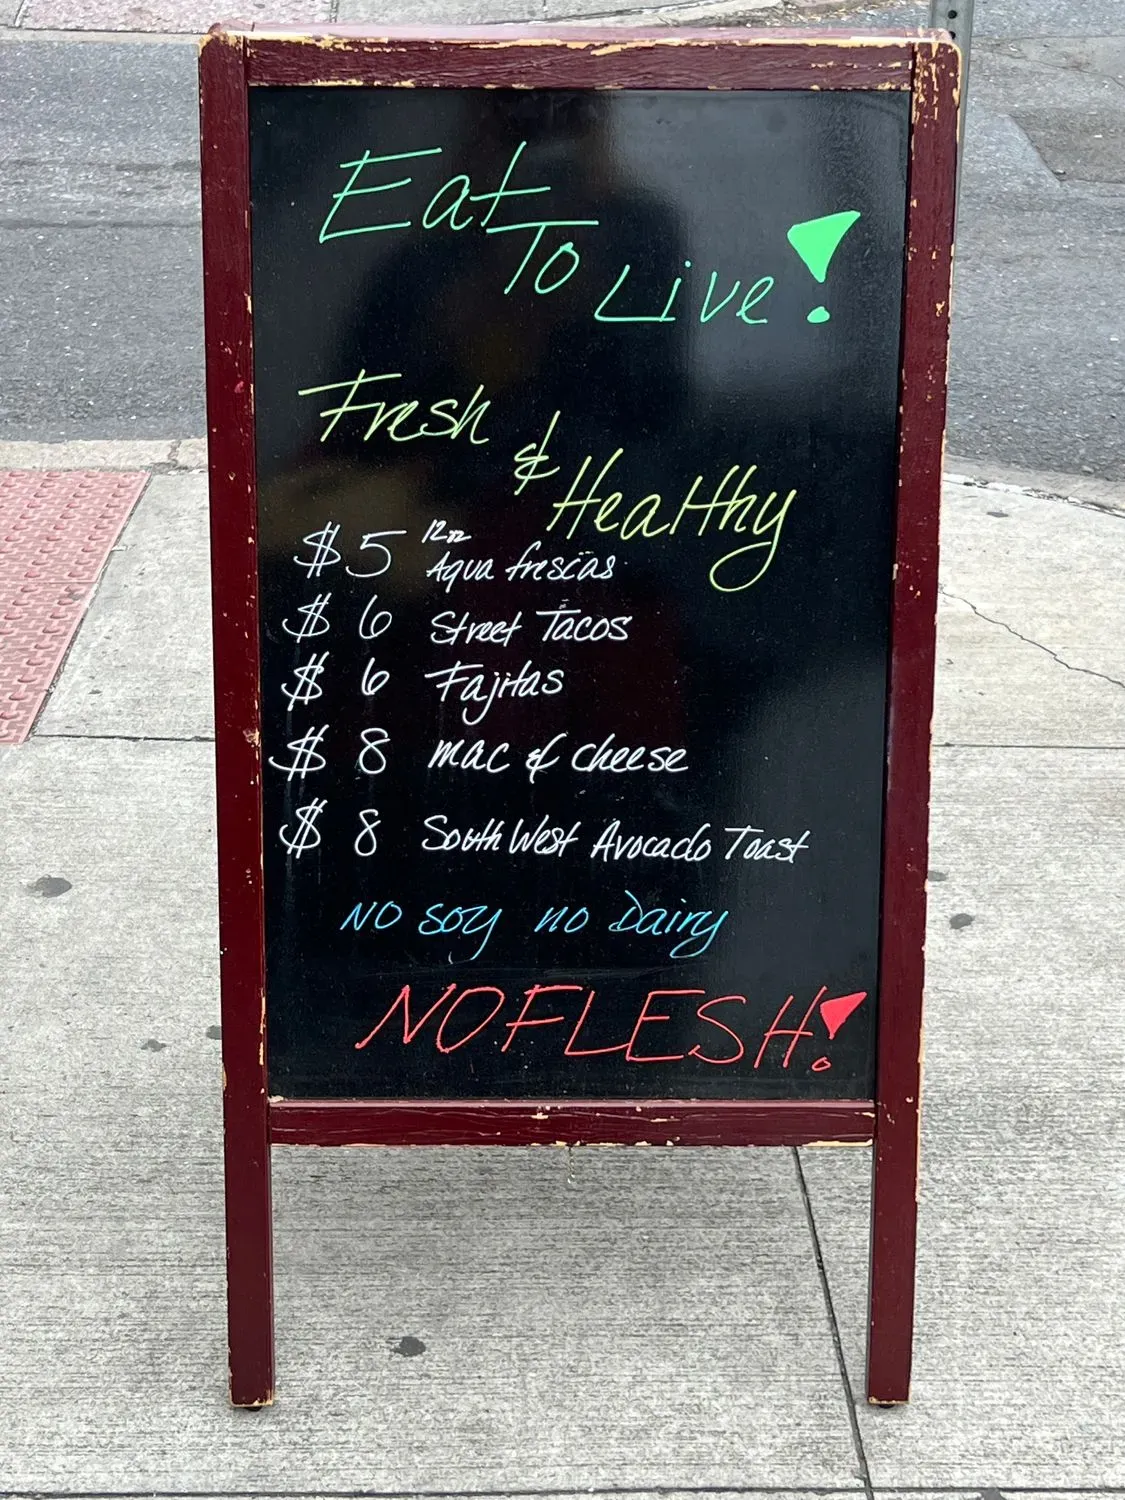 Eat
To Live!
Fresh
&
Healthy
$5 12oz
Aqua frescas
$6 Street Tacos
$6 Fajitas
$8 mac & cheese
$8 South West Avocado Toast
NO soy no Dairy
NO FLESH!